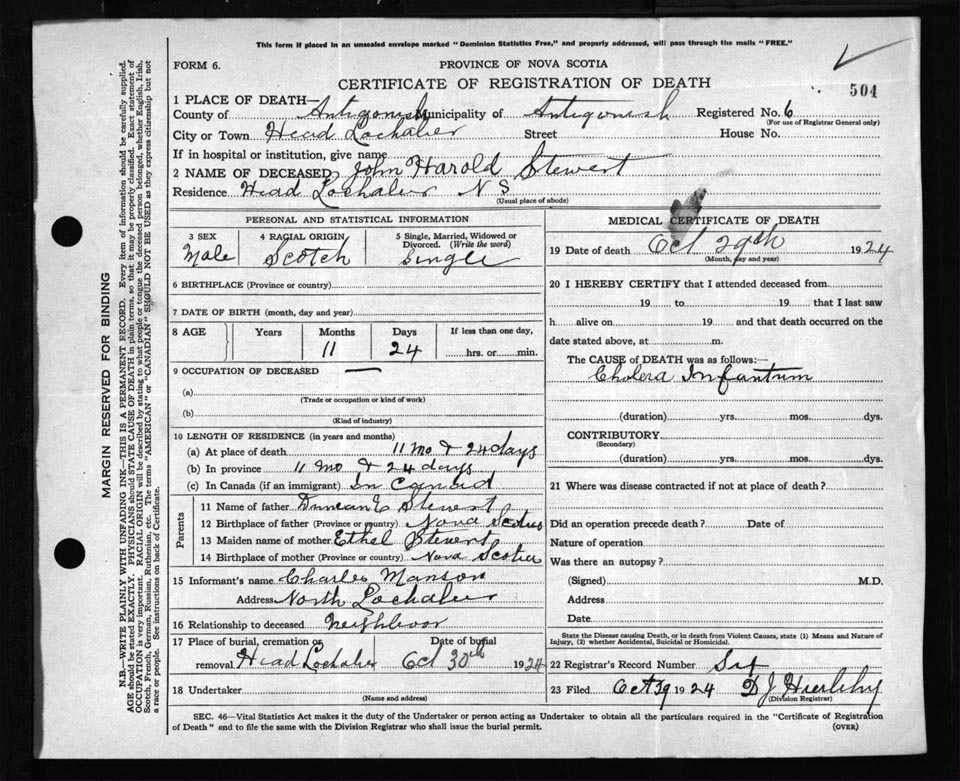 This form if placed in an unsealed envelope marked "Dominion Statistics Free," and properly addressed, will pass through the mails "FREE."
FORM 6.
PROVINCE OF NOVA SCOTIA
CERTIFICATE OF REGISTRATION OF DEATH
504
1 PLACE OF DEATH—
County of Antigonish Municipality of Antigonish Registered No. 6
(For use of Registrar General only)
City or Town Head Lochaber Street House No.
If in hospital or institution, give name
2 NAME OF DECEASED John Harold Stewert
Residence Head Lochaber N S
(Usual place of abode)
PERSONAL AND STATISTICAL INFORMATION
3 SEX Male
4 RACIAL ORIGIN Scotch
5 Single, Married, Widowed or Divorced. (Write the word) Single
6 BIRTHPLACE (Province or country)
7 DATE OF BIRTH (month, day and year)
8 AGE Years Months Days If less than one day,
11 24 hrs. or min.
9 OCCUPATION OF DECEASED —
(a)
(Trade or occupation or kind of work)
(b)
(Kind of industry)
10 LENGTH OF RESIDENCE (in years and months)
(a) At place of death 11 mo & 24 days
(b) In province 11 mo & 24 days
(c) In Canada (if an immigrant) In
Parents
11 Name of father Duncan E Stewert
12 Birthplace of father (Province or country) Nova Scotia
13 Maiden name of mother Ethel Stewert
14 Birthplace of mother (Province or country) Nova Scotia
15 Informant's name Charles Manson
Address North Lochaber
16 Relationship to deceased
17 Place of burial, cremation or removal Head Lochaber
Date of burial Oct 30th 1924
18 Undertaker
(Name and address)
MEDICAL CERTIFICATE OF DEATH
19 Date of death Oct 29th 1924
(Month, day and year)
20 I HEREBY CERTIFY that I attended deceased from
19 to 19 that I last saw
h alive on 19 and that death occurred on the
date stated above, at m.
The CAUSE of DEATH was as follows:—
Cholera Infantum
(duration) yrs. mos. dys.
CONTRIBUTORY
(Secondary)
(duration) yrs. mos. dys.
21 Where was disease contracted if not at place of death?
Did an operation precede death? Date of
Nature of operation
Was there an autopsy?
(Signed) M.D.
Address
Date
State the Disease causing Death, or in death from Violent Causes, state (1) Means and Nature of
Injury, (2) whether Accidental, Suicidal or Homicidal.
22 Registrar's Record Number
23 Filed Oct 1924 D J
(Division Registrar)
SEC. 46—Vital Statistics Act makes it the duty of the Undertaker or person acting as Undertaker to obtain all the particulars required in the "Certificate of Registration
of Death" and to file the same with the Division Registrar who shall issue the burial permit.
(OVER)
MARGIN RESERVED FOR BINDING
N.B.—WRITE PLAINLY WITH UNFADING INK—THIS IS A PERMANENT RECORD. Every item of information should be carefully supplied.
AGE should be stated EXACTLY. PHYSICIANS should STATE CAUSE OF DEATH in plain terms, so that it may be properly classified. Exact statement of
OCCUPATION is very important. RACIAL ORIGIN will be described by stating to what people or tongue the deceased person belonged, whether English, Irish,
Scotch, French, German, Russian, Ruthenian, etc. The terms "AMERICAN" or "CANADIAN" SHOULD NOT BE USED as they express citizenship but not
a race or people. See instructions on back of Certificate.